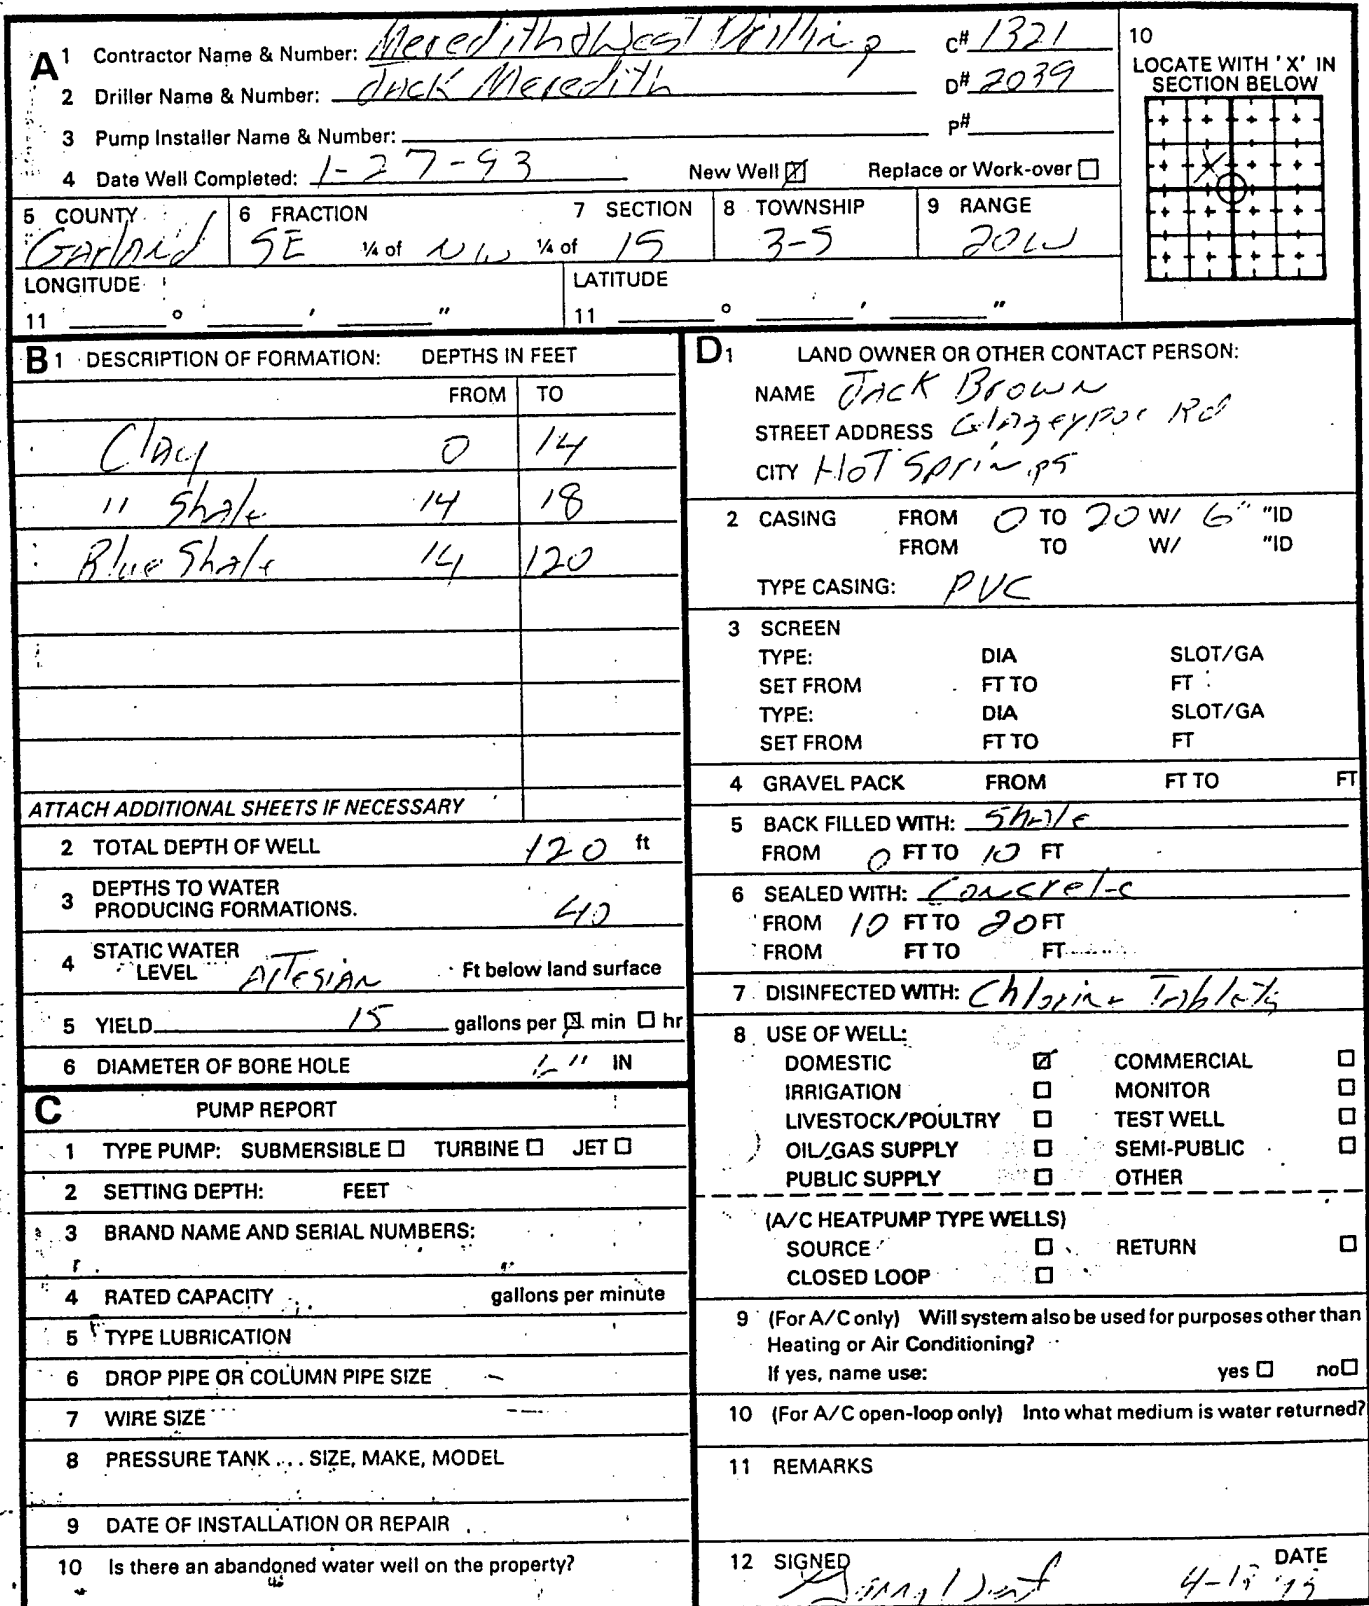 A 1 Contractor Name & Number: Meredith & West Drilling C# 1321
2 Driller Name & Number: Jack Meredith D# 2039
3 Pump Installer Name & Number: P#
4 Date Well Completed: 1-27-93 New Well ☒ Replace or Work-over ☐
10
LOCATE WITH 'X' IN
SECTION BELOW
X
5 COUNTY 6 FRACTION 7 SECTION 8 TOWNSHIP 9 RANGE
Garland SE ¼ of NW ¼ of 15 3-S 20W
LONGITUDE LATITUDE
11 ° ' " 11 ° ' "
B 1 DESCRIPTION OF FORMATION: DEPTHS IN FEET
FROM TO
Clay 0 14
" Shale 14 18
Blue Shale 14 120
ATTACH ADDITIONAL SHEETS IF NECESSARY
2 TOTAL DEPTH OF WELL 120 ft
3 DEPTHS TO WATER
PRODUCING FORMATIONS. 40
4 STATIC WATER
LEVEL Artesian Ft below land surface
5 YIELD 15 gallons per ☒ min ☐ hr
6 DIAMETER OF BORE HOLE " IN
C PUMP REPORT
1 TYPE PUMP: SUBMERSIBLE ☐ TURBINE ☐ JET ☐
2 SETTING DEPTH: FEET
3 BRAND NAME AND SERIAL NUMBERS:
4 RATED CAPACITY gallons per minute
5 TYPE LUBRICATION
6 DROP PIPE OR COLUMN PIPE SIZE
7 WIRE SIZE
8 PRESSURE TANK ... SIZE, MAKE, MODEL
9 DATE OF INSTALLATION OR REPAIR
10 Is there an abandoned water well on the property?
D 1 LAND OWNER OR OTHER CONTACT PERSON:
NAME Jack Brown
STREET ADDRESS Rd
CITY Hot Springs
2 CASING FROM 0 TO 20 W/ 6" "ID
FROM TO W/ "ID
TYPE CASING: PVC
3 SCREEN
TYPE: DIA SLOT/GA
SET FROM FT TO FT
TYPE: DIA SLOT/GA
SET FROM FT TO FT
4 GRAVEL PACK FROM FT TO FT
5 BACK FILLED WITH: Shale
FROM 0 FT TO 10 FT
6 SEALED WITH: Concrete
FROM 10 FT TO 20 FT
FROM FT TO FT
7 DISINFECTED WITH: Chlorine Tablets
8 USE OF WELL:
DOMESTIC ☒ COMMERCIAL ☐
IRRIGATION ☐ MONITOR ☐
LIVESTOCK/POULTRY ☐ TEST WELL ☐
OIL/GAS SUPPLY ☐ SEMI-PUBLIC ☐
PUBLIC SUPPLY ☐ OTHER
(A/C HEATPUMP TYPE WELLS)
SOURCE ☐ RETURN ☐
CLOSED LOOP ☐
9 (For A/C only) Will system also be used for purposes other than
Heating or Air Conditioning?
If yes, name use: yes ☐ no ☐
10 (For A/C open-loop only) Into what medium is water returned?
11 REMARKS
12 SIGNED DATE